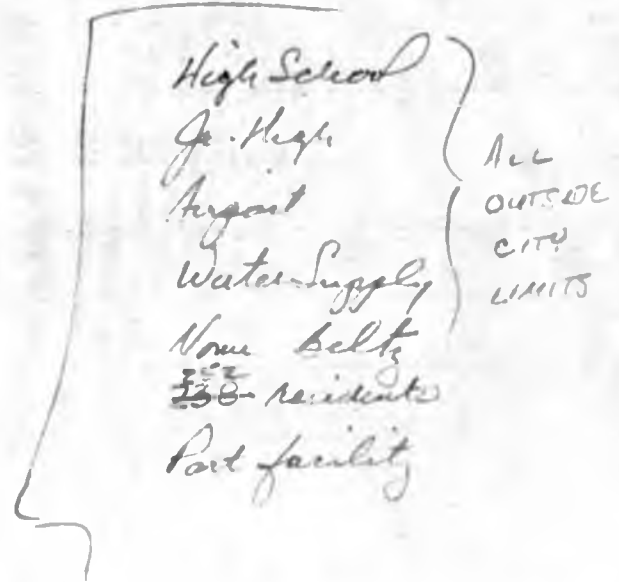 High School
Jr. High
Airport
Water Supply
Nome Beltz
residents
Port facility
ALL
OUTSIDE
CITY
LIMITS